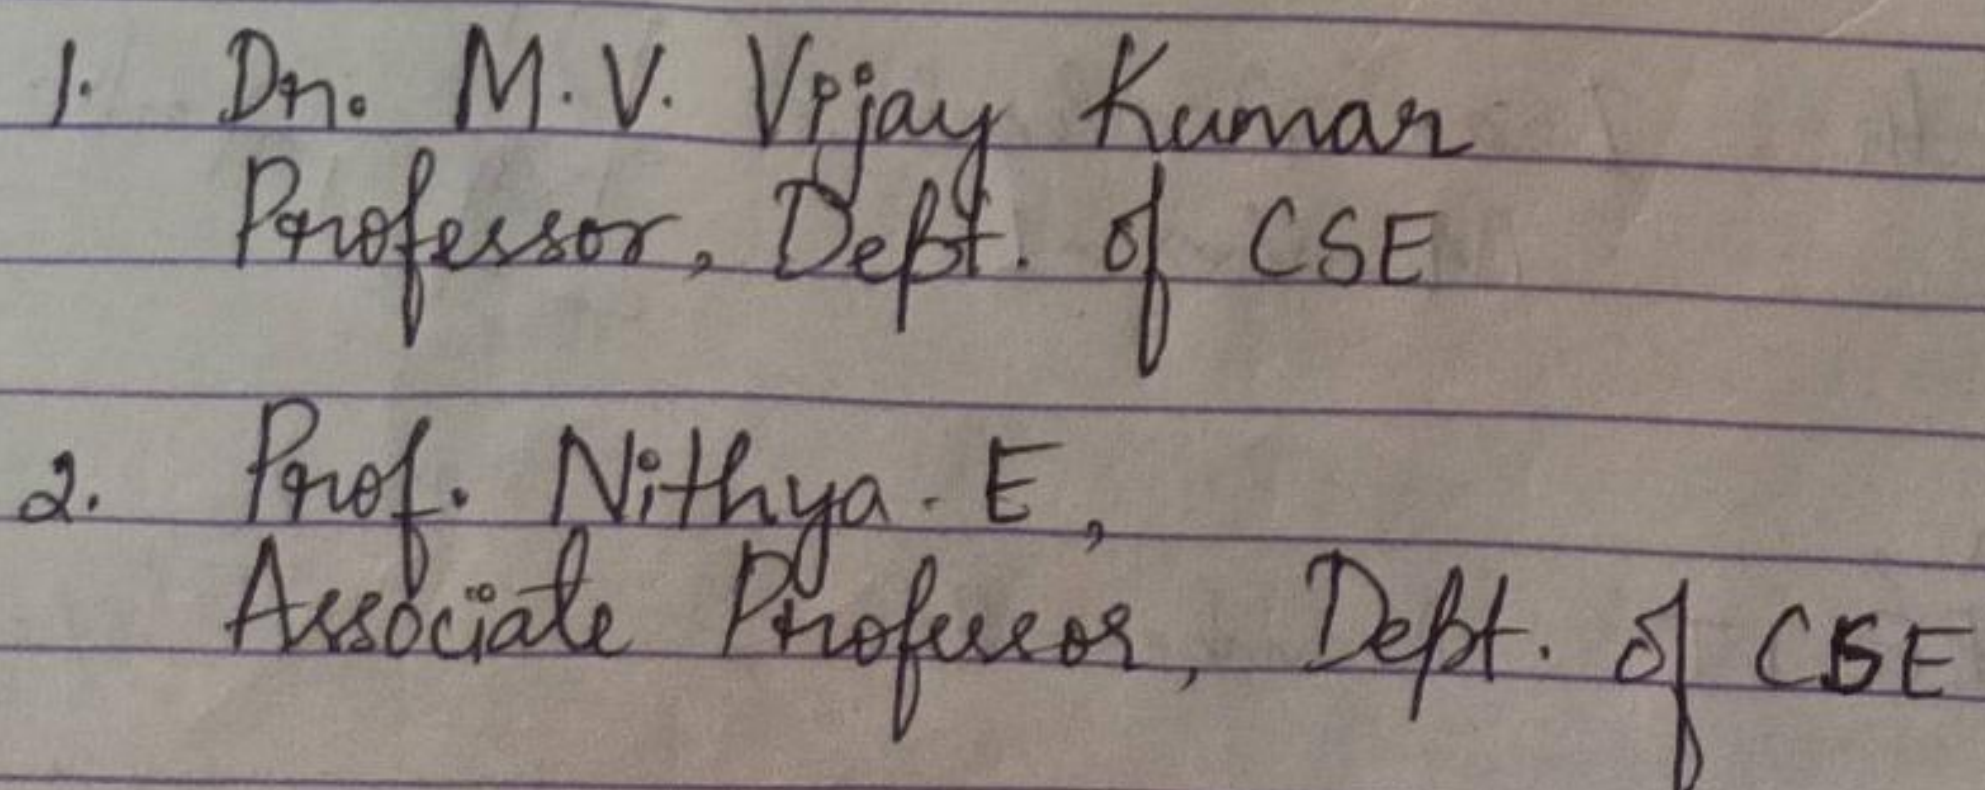 1. Dr. M.V. Vijay Kumar
Professor, Dept. of CSE
2. Prof. Nithya. E,
Associate Professor, Dept. of CSE